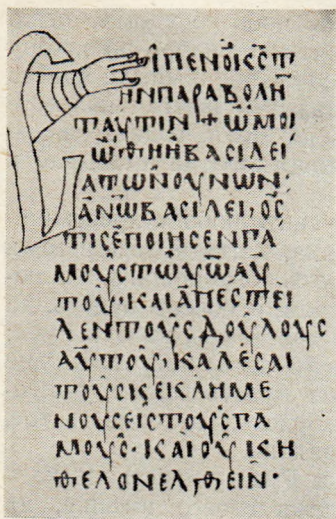 ΕΙΠΕΝΟΚ̅Ϲ̅Τ
ΗΝΠΑΡΑΒΟΛΗ̅
ΤΑΥΤΙΝ + ΩΜΟΙ
ΩΘΗΗΒΑϹΙΛΕΙ
ΑΤΩΝΟΥΝΩ̅Ν:
ΑΝ̅ΩΒΑϹΙΛΕΙ, ΟϹ
ΤΙϹΕΠΟΙΗϹΕΝΓΑ
ΜΟΥϹΤΩΥ̅Ω̅ΑΥ
ΤΟΥ· ΚΑΙΑΠΕϹΤΕΙ
ΛΕΝΤΟΥϹΔΟΥΛΟΥϹ
ΑΥΤΟΥ, ΚΑΛΕϹΑΙ
ΤΟΥϹΚΕΚΛΗΜΕ
ΝΟΥϹΕΙϹΤΟΥϹΓΑ
ΜΟΥϹ· ΚΑΙΟΥΚΗ
ΘΕΛΟΝΕΛΘΕΙΝ·